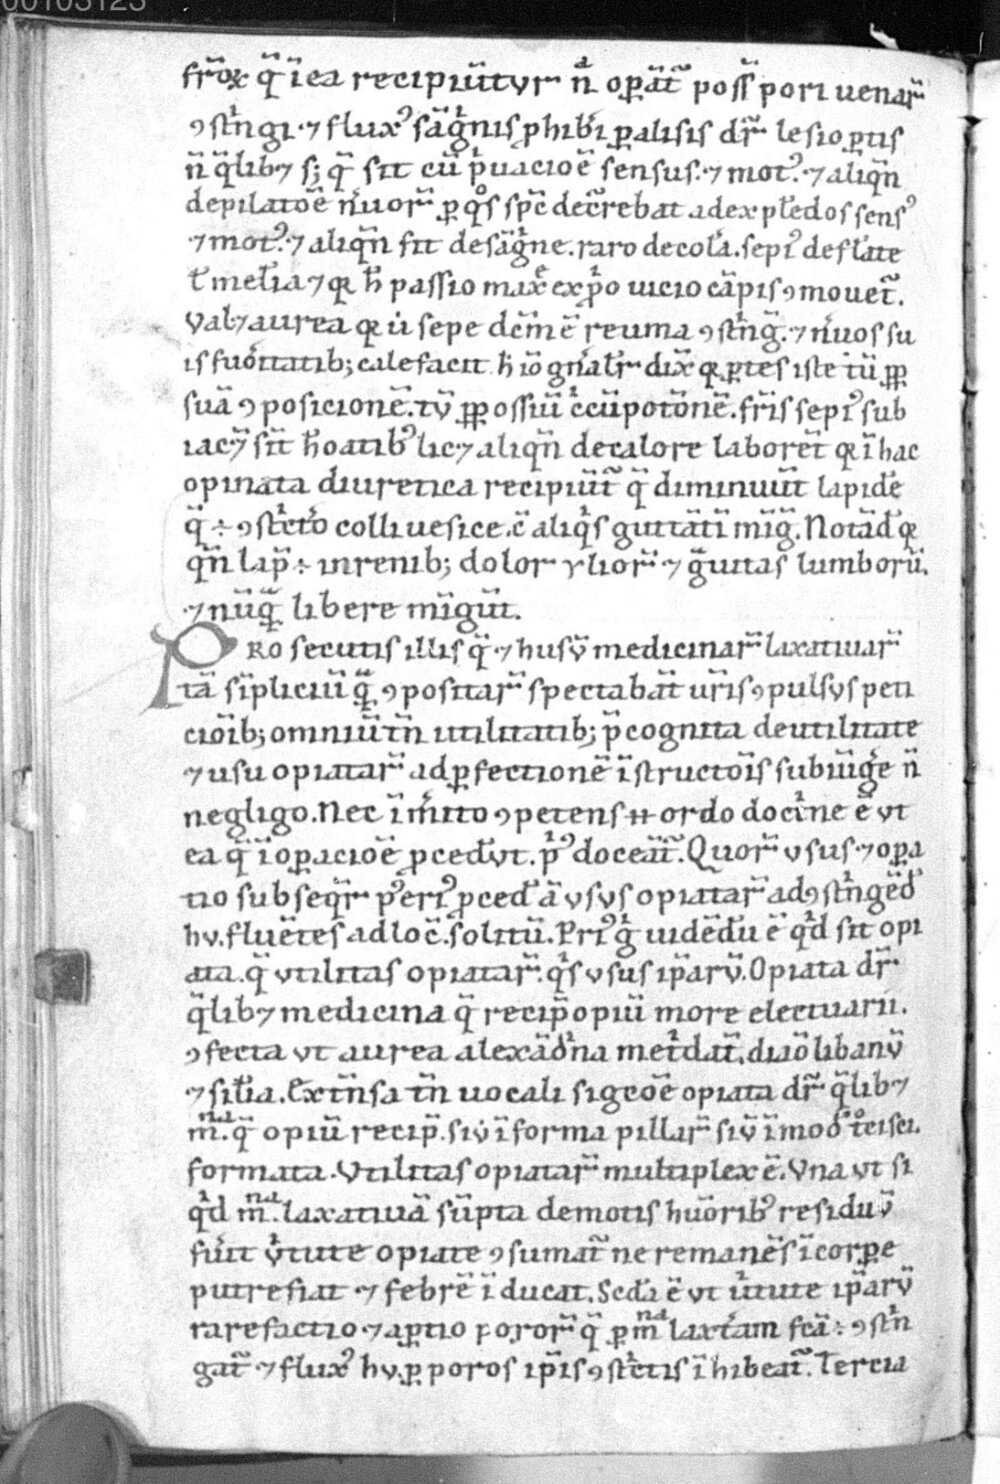 00103123
fr̄oꝝ q̄ ī ea recipiūtvr n̄ oꝑāt̄ poss̄ pori uenaꝝ̄
ꝯstⁱngi ⁊ flux᷒ sāgⁱnis ꝓhibⁱ ꝑalisis dr̄ lesio ꝑtis
n̄ qᷓlibꝫ sꝫ q̄ sit cū pⁱuacioē sensus ⁊ mot᷒. ⁊ aliqn̄
depilatōe n̄uor̄ ꝑ qᵒs spc̄ decr̄ebat ad expl̄edos sens᷒
⁊ mot᷒. ⁊ aliqn̄ fit de sāgⁱne. raro de col̄a. sepi᷒ de fl̄ate
l̄ mel̄ia ⁊ qꝛ h̄ passio max̄e ex pⁱo uicio cāpis ꝯmouet̄.
Valꝫ aurea qꝛ ui sepe dc̄m ē reuma ꝯstⁱnḡ. ⁊ n̄uos su
is fuōitatibꝫ calefacit h iō gn̄alr̄ dix̄ qꝛ ꝑtes iste tū ꝓꝑ
suā ꝯposicionē. tv̄ ꝓꝑ ossiū cⁱcūpotōnē. fr̄is sepi᷒ sub
iacꝫ sīt h̄oatib᷒ licꝫ aliqn̄ de calore laborēt qꝛ ī hac
opinata diuretica recipiūt̄ q̄ diminuūt lapidē
q̄ ÷ ꝯstⁱctō colli uesice. ē aliqⁱs guttātī mīḡ. Notād̄ qꝛ
qn̄ lap̄ ÷ in renibꝫ dolor ylior̄ ⁊ gᷓuitas lumborū.
⁊ nūqᷓ libere mīgūt.
PRosecutis illis q̄ ⁊ husv̄ medicinar̄ laxatiuar̄
tā sīpliciū qᷓ ꝯpositar̄ spectabāt ur̄is ꝯpulsvs peti
ciōibꝫ omniū tn̄ utilitatibꝫ p̄cognita de utilitate
⁊ usu opiatar̄ ad ꝑfectionē īstructōis subiūgⁱe n̄
negligo. Nec īmⁱito ꝯpetens ÷ ordo doctⁱne ē vt
ea q̄ ī oꝑacioē ꝓcedūt. pⁱ᷒ doceāt̄. Quor̄ vsus ⁊ oꝑa
tio subseqr̄ p᷒eri᷒ ꝓced̄ ā vsvs opiatar̄ ad ꝯstⁱngēd̄
hv. fluētes ad loc̄. solitū. Pri᷒ gⁱ uidēdū ē qⁱd sit opi
ata. q̄ vtilitas opiatar̄. qⁱs vsus ip̄arv̄. Opiata dr̄
qᷓlibꝫ medicina q̄ recip̄ opiū more electuarii.
ꝯfecta vt aurea alexādⁱna metⁱdat̄. diaōlibanv̄
⁊ sil̄ia. Extⁱnsa tn̄ uocali sigcōe opiata dr̄ qᷓlibꝫ
m̄na. q̄ opiū recip̄. siv̄ ī forma pillar̄ siv̄ ī modō tⁱcisci.
formata. Vtilitas opiatar̄ multiplex ē. Vna vt si
qⁱd m̄na. laxatiuā sūpta de motis huōrib᷒ residuv̄
fuⁱit vⁱtute opiate ꝯsumat̄ ne remanēs ī corꝑe
putrefiat ⁊ febrē īducat. Scd̄a ē vt uⁱtute ip̄arv̄
rarefactio ⁊ aꝑtio poror̄ q̄ ꝑ m̄nā laxⁱtām fc̄ā ÷ ꝯstⁱn
gat̄ ⁊ flux᷒ hv. ꝑ poros ip̄is ꝯstⁱctis īhibeat̄. Tercia